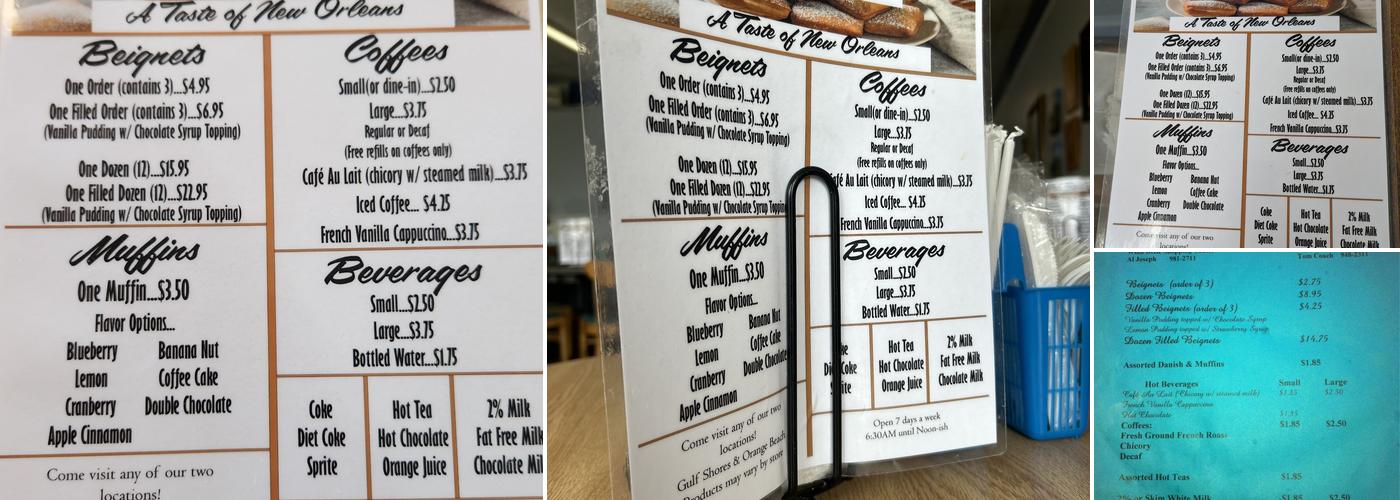 A Taste of New Orleans
Beignets
One Order (contains 3)...$4.95
One Filled Order (contains 3)...$6.95
(Vanilla Pudding w/ Chocolate Syrup Topping)
One Dozen (12)...$15.95
One Filled Dozen (12)...$22.95
(Vanilla Pudding w/ Chocolate Syrup Topping)
Muffins
One Muffin...$3.50
Flavor Options...
Blueberry Banana Nut
Lemon Coffee Cake
Cranberry Double Chocolate
Apple Cinnamon
Come visit any of our two
locations!
Coffees
Small(or dine-in)...$2.50
Large...$3.75
Regular or Decaf
(Free refills on coffees only)
Café Au Lait (chicory w/ steamed milk)...$3.75
Iced Coffee... $4.25
French Vanilla Cappuccino...$3.75
Beverages
Small...$2.50
Large...$3.75
Bottled Water...$1.75
Coke
Diet Coke
Sprite
Hot Tea
Hot Chocolate
Orange Juice
2% Milk
Fat Free Milk
Chocolate Mil
A Taste of New Orleans
Beignets
One Order (contains 3)...$4.95
One Filled Order (contains 3)...$6.95
(Vanilla Pudding w/ Chocolate Syrup Topping)
One Dozen (12)...$15.95
One Filled Dozen (12)...$22.95
(Vanilla Pudding w/ Chocolate Syrup Topping
Muffins
One Muffin...$3.50
Flavor Options...
Blueberry Banana Nut
Lemon Coffee Cake
Cranberry Double Chocolate
Apple Cinnamon
Come visit any of our two
locations!
Gulf Shores & Orange Beach
Products may vary by store
Coffees
Small(or dine-in)...$2.50
Large...$3.75
Regular or Decaf
(Free refills on coffees only)
Café Au Lait (chicory w/ steamed milk)...$3.75
Iced Coffee... $4.25
French Vanilla Cappuccino...$3.75
Beverages
Small...$2.50
Large...$3.75
Bottled Water...$1.75
Hot Tea
Hot Chocolate
Orange Juice
2% Milk
Fat Free Milk
Chocolate Milk
Open 7 days a week
6:30AM until Noon-ish
A Taste of New Orleans
Beignets
One Order (contains 3)...$4.95
One Filled Order (contains 3)...$6.95
(Vanilla Pudding w/ Chocolate Syrup Topping)
One Dozen (12)...$15.95
One Filled Dozen (12)...$22.95
(Vanilla Pudding w/ Chocolate Syrup Topping)
Muffins
One Muffin...$3.50
Flavor Options...
Blueberry Banana Nut
Lemon Coffee Cake
Cranberry Double Chocolate
Apple Cinnamon
Come visit any of our two
locations!
Coffees
Small(or dine-in)...$2.50
Large...$3.75
Regular or Decaf
(Free refills on coffees only)
Café Au Lait (chicory w/ steamed milk)...$3.75
Iced Coffee... $4.25
French Vanilla Cappuccino...$3.75
Beverages
Small...$2.50
Large...$3.75
Bottled Water...$1.75
Coke
Diet Coke
Sprite
Hot Tea
Hot Chocolate
Orange Juice
2% Milk
Fat Free Milk
Chocolate Milk
Al Joseph 981-2711 Tom Couch
Beignets (order of 3) $2.75
Dozen Beignets $8.95
Filled Beignets (order of 3) $4.25
Vanilla Pudding topped w/ Chocolate Syrup
Lemon Pudding topped w/ Strawberry Syrup
Dozen Filled Beignets $14.75
Assorted Danish & Muffins $1.85
Hot Beverages Small Large
Café Au Lait (Chicory w/ steamed milk) $1.85 $2.50
French Vanilla Cappuccino
Hot Chocolate $1.85
Coffees: $1.85 $2.50
Fresh Ground French Roast
Chicory
Decaf
Assorted Hot Teas $1.85
2% or Skim White Milk $1.85 $2.50